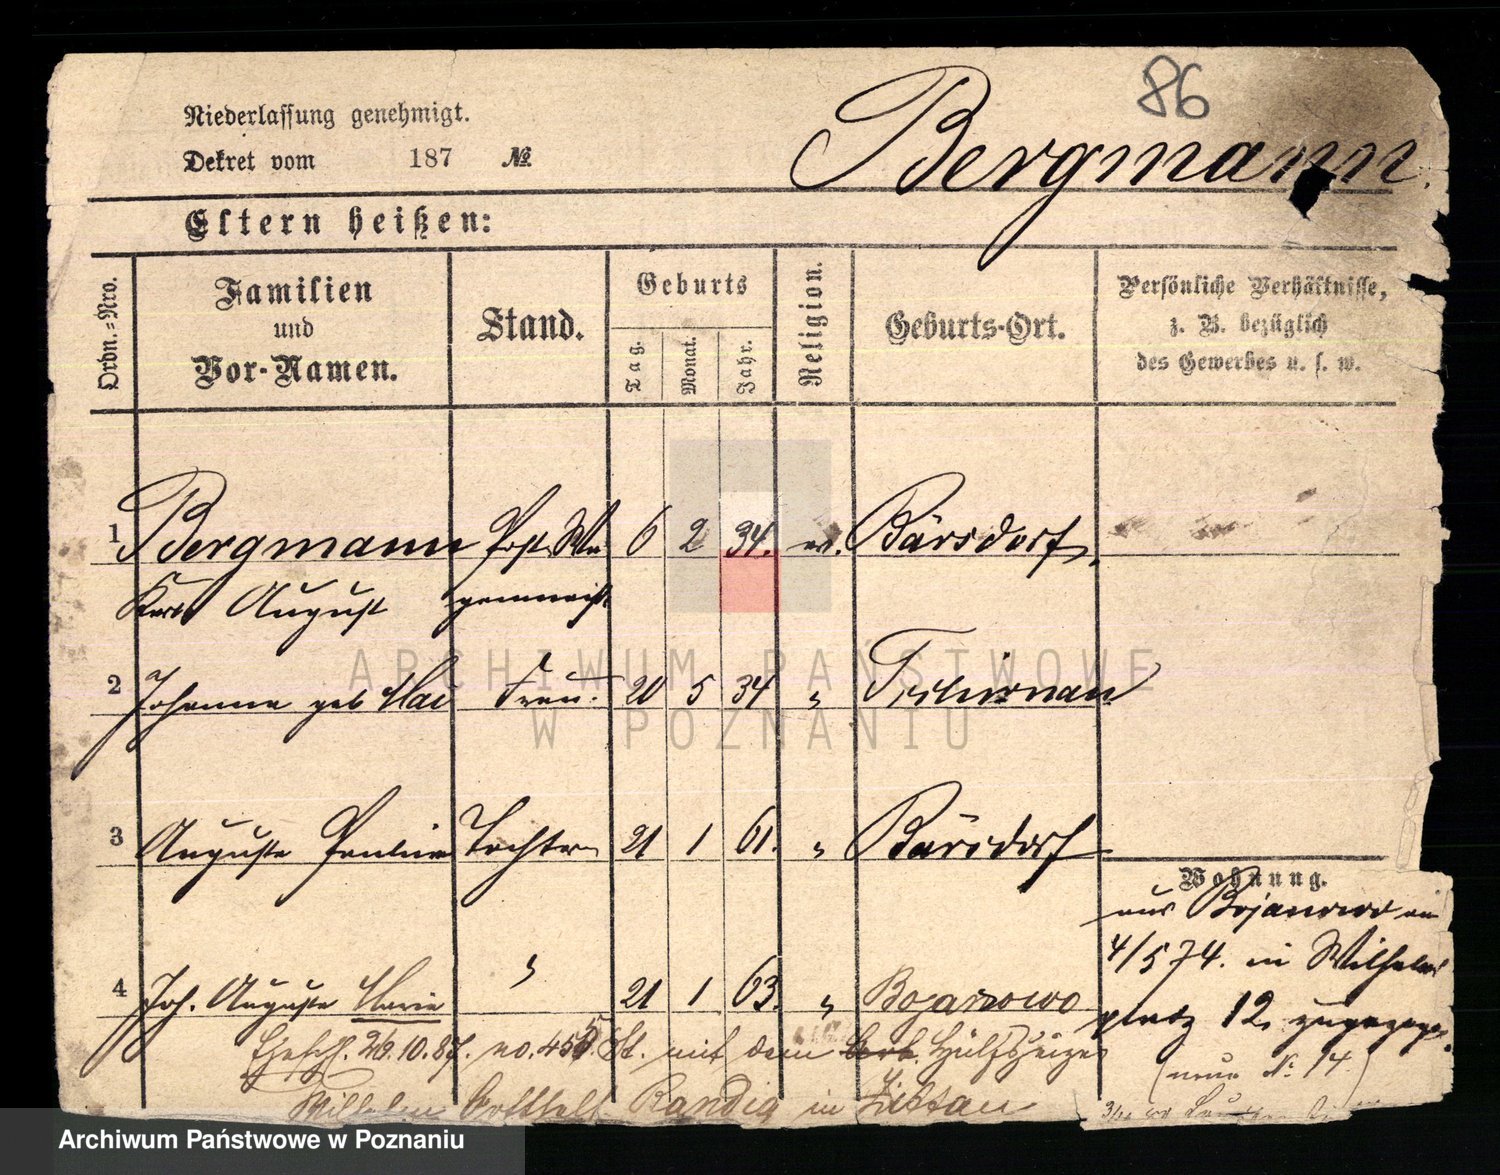 86
Niederlassung genehmigt.
Dekret vom 187 №
Bergmann.
Eltern heißen:
Ordn.=Nro.
Familien
und
Vor-Namen.
Stand.
Geburts
Tag.
Monat.
Jahr.
Religion.
Geburts-Ort.
Persönliche Verhältnisse,
z. B. bezüglich
des Gewerbes u. s. w.
1 Bergmann 6 2 34. ev. Bärsdorf,
Karl August
2 Johanna geb Frau. 20 5 34 "
3 Auguste Pauline Tochter 21 1 61. " Bärsdorf
Wohnung.
aus Bojanowo am
4/5 74. in Wilhelms
platz 12, zugezogen.
(neue № 14.)
4 Joh. Auguste Marie " 21 1 63. " Bojanowo
Ehesch. 29.10.87. no. 455 St. mit dem Hülfsheizer
Wilhelm in
ARCHIWUM PAŃSTWOWE
W POZNANIU
Archiwum Państwowe w Poznaniu